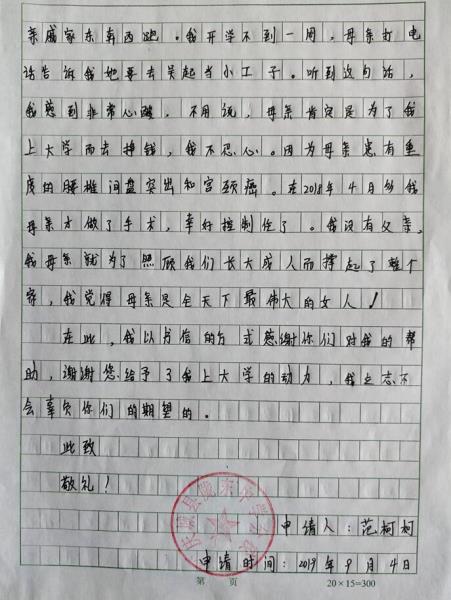 亲戚家东奔西跑。我开学不到一周,母亲打电
话告诉我她要去吴起当小工子。听到这句话,
我感到非常心酸,不用说,母亲肯定是为了我
上大学而去挣钱,我不忍心。因为母亲患有重
度的腰椎间盘突出和宫颈癌。在2018年4月份我
母亲才做了手术,幸好控制住了。我没有父亲,
我母亲就为了照顾我们长大成人而撑起了整个
家,我觉得母亲是全天下最伟大的女人!
在此,我以书信的方式感谢你们对我的帮
助,谢谢您给予了我上大学的动力,我之志不
会辜负你们的期望的。
此致
敬礼!
申请人:范柯柯
申请时间:2019年9月4日
第 页
20×15=300